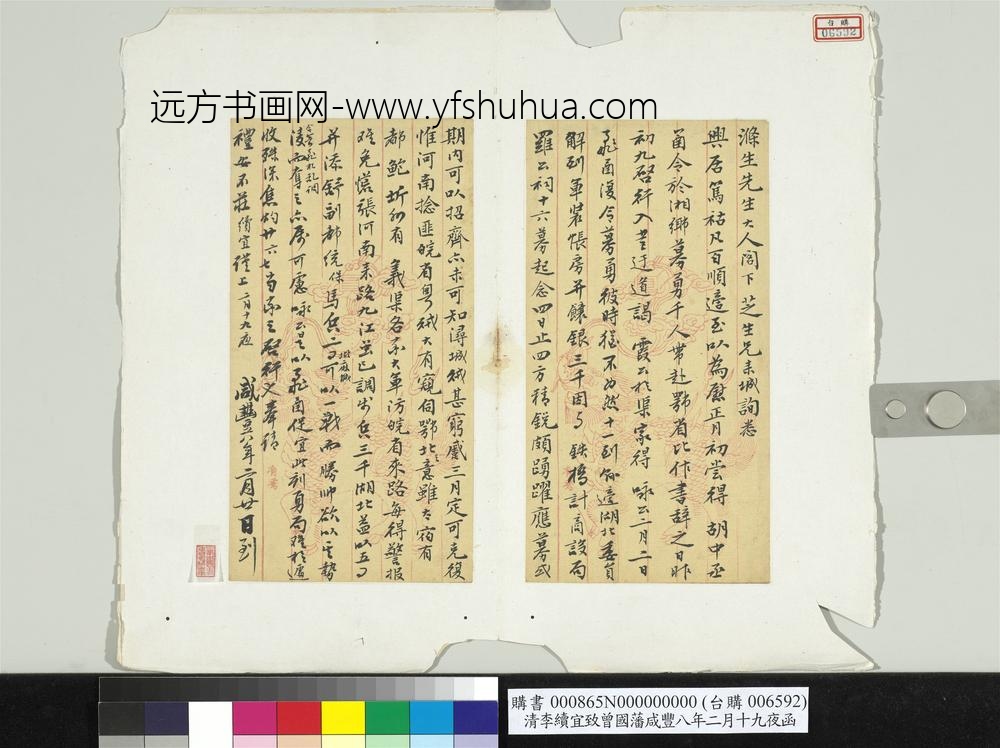 远方书画网-www.yfshuhua.com
台購
006592
滌生先生大人閣下芝生兄來城詢悉
興居篤祜凡百順適至以為慰正月初嘗得 胡中丞
函令於湘鄉募勇千人帶赴鄂省比作書辭之日昨
初九啓行入 迂道謁 霞公於渠家得 詠公二月二日
飛函復令募勇彼時猶不為然十一到 適湖北委員
解到軍裝帳房并餉銀三千因與 鐵橋計商設局
羅公祠十六募起念四日止四方精銳頗踴躍應募或
期內可以招齊亦未可知潯城賊甚窮蹙三月定可克復
惟河南捻匪皖省粵賊大有窺伺鄂北之意雖太宿有
都 鮑 所有 義渠各系大軍防皖省來路每得警報
難免慌張河南來路九江業已調步兵三千湖北益以五
并添舒副都統保馬兵二 可以一戰而勝帥欲以其勢
凌而奪之亦屬可慮 詠公是以飛函促宜此到勇而難於遽
收殊深焦灼廿六七當家之啓行又奉稿
禮安不莊續宜謹上二月十九夜
咸豐八年二月廿日到
購書 000865N000000000 (台購 006592)
清李續宜致曾國藩咸豐八年二月十九夜函